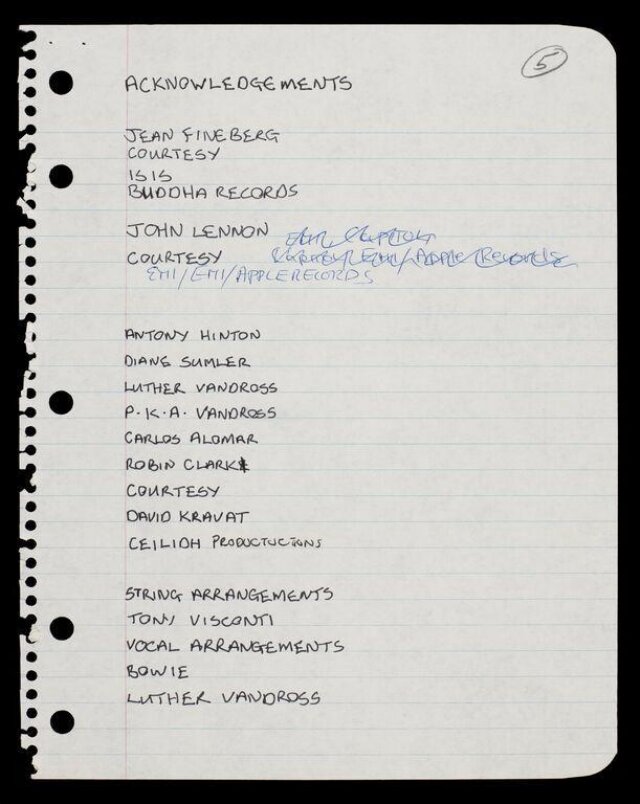 5
ACKNOWLEDGEMENTS
JEAN FINEBERG
COURTESY
ISIS
BUDDHA RECORDS
JOHN LENNON
COURTESY EMI/APPLE RECORDS
EMI/EMI/APPLE RECORDS
ANTONY HINTON
DIANE SUMLER
LUTHER VANDROSS
P.K.A. VANDROSS
CARLOS ALOMAR
ROBIN CLARK
COURTESY
DAVID KRAVAT
CEILIDH PRODUCTUCTIONS
STRING ARRANGEMENTS
TONY VISCONTI
VOCAL ARRANGEMENTS
BOWIE
LUTHER VANDROSS